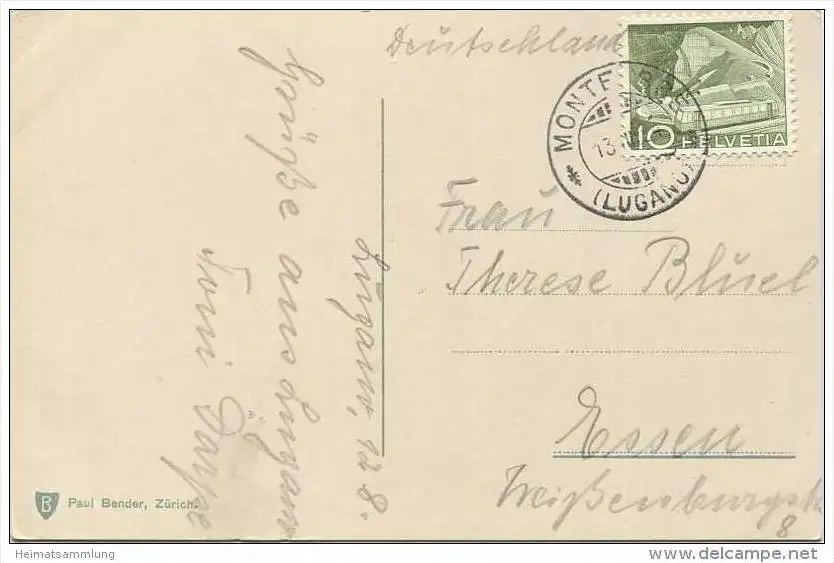 Lugano, 12 8.
Grüße aus Lugano
Toni
Deutschland
Frau
Therese Bluel
Essen
Weißenburgstr
8
MONTE BRÈ
13
(LUGANO)
10 HELVETIA
B Paul Bender, Zürich.
Heimatsammlung
delcampe.net